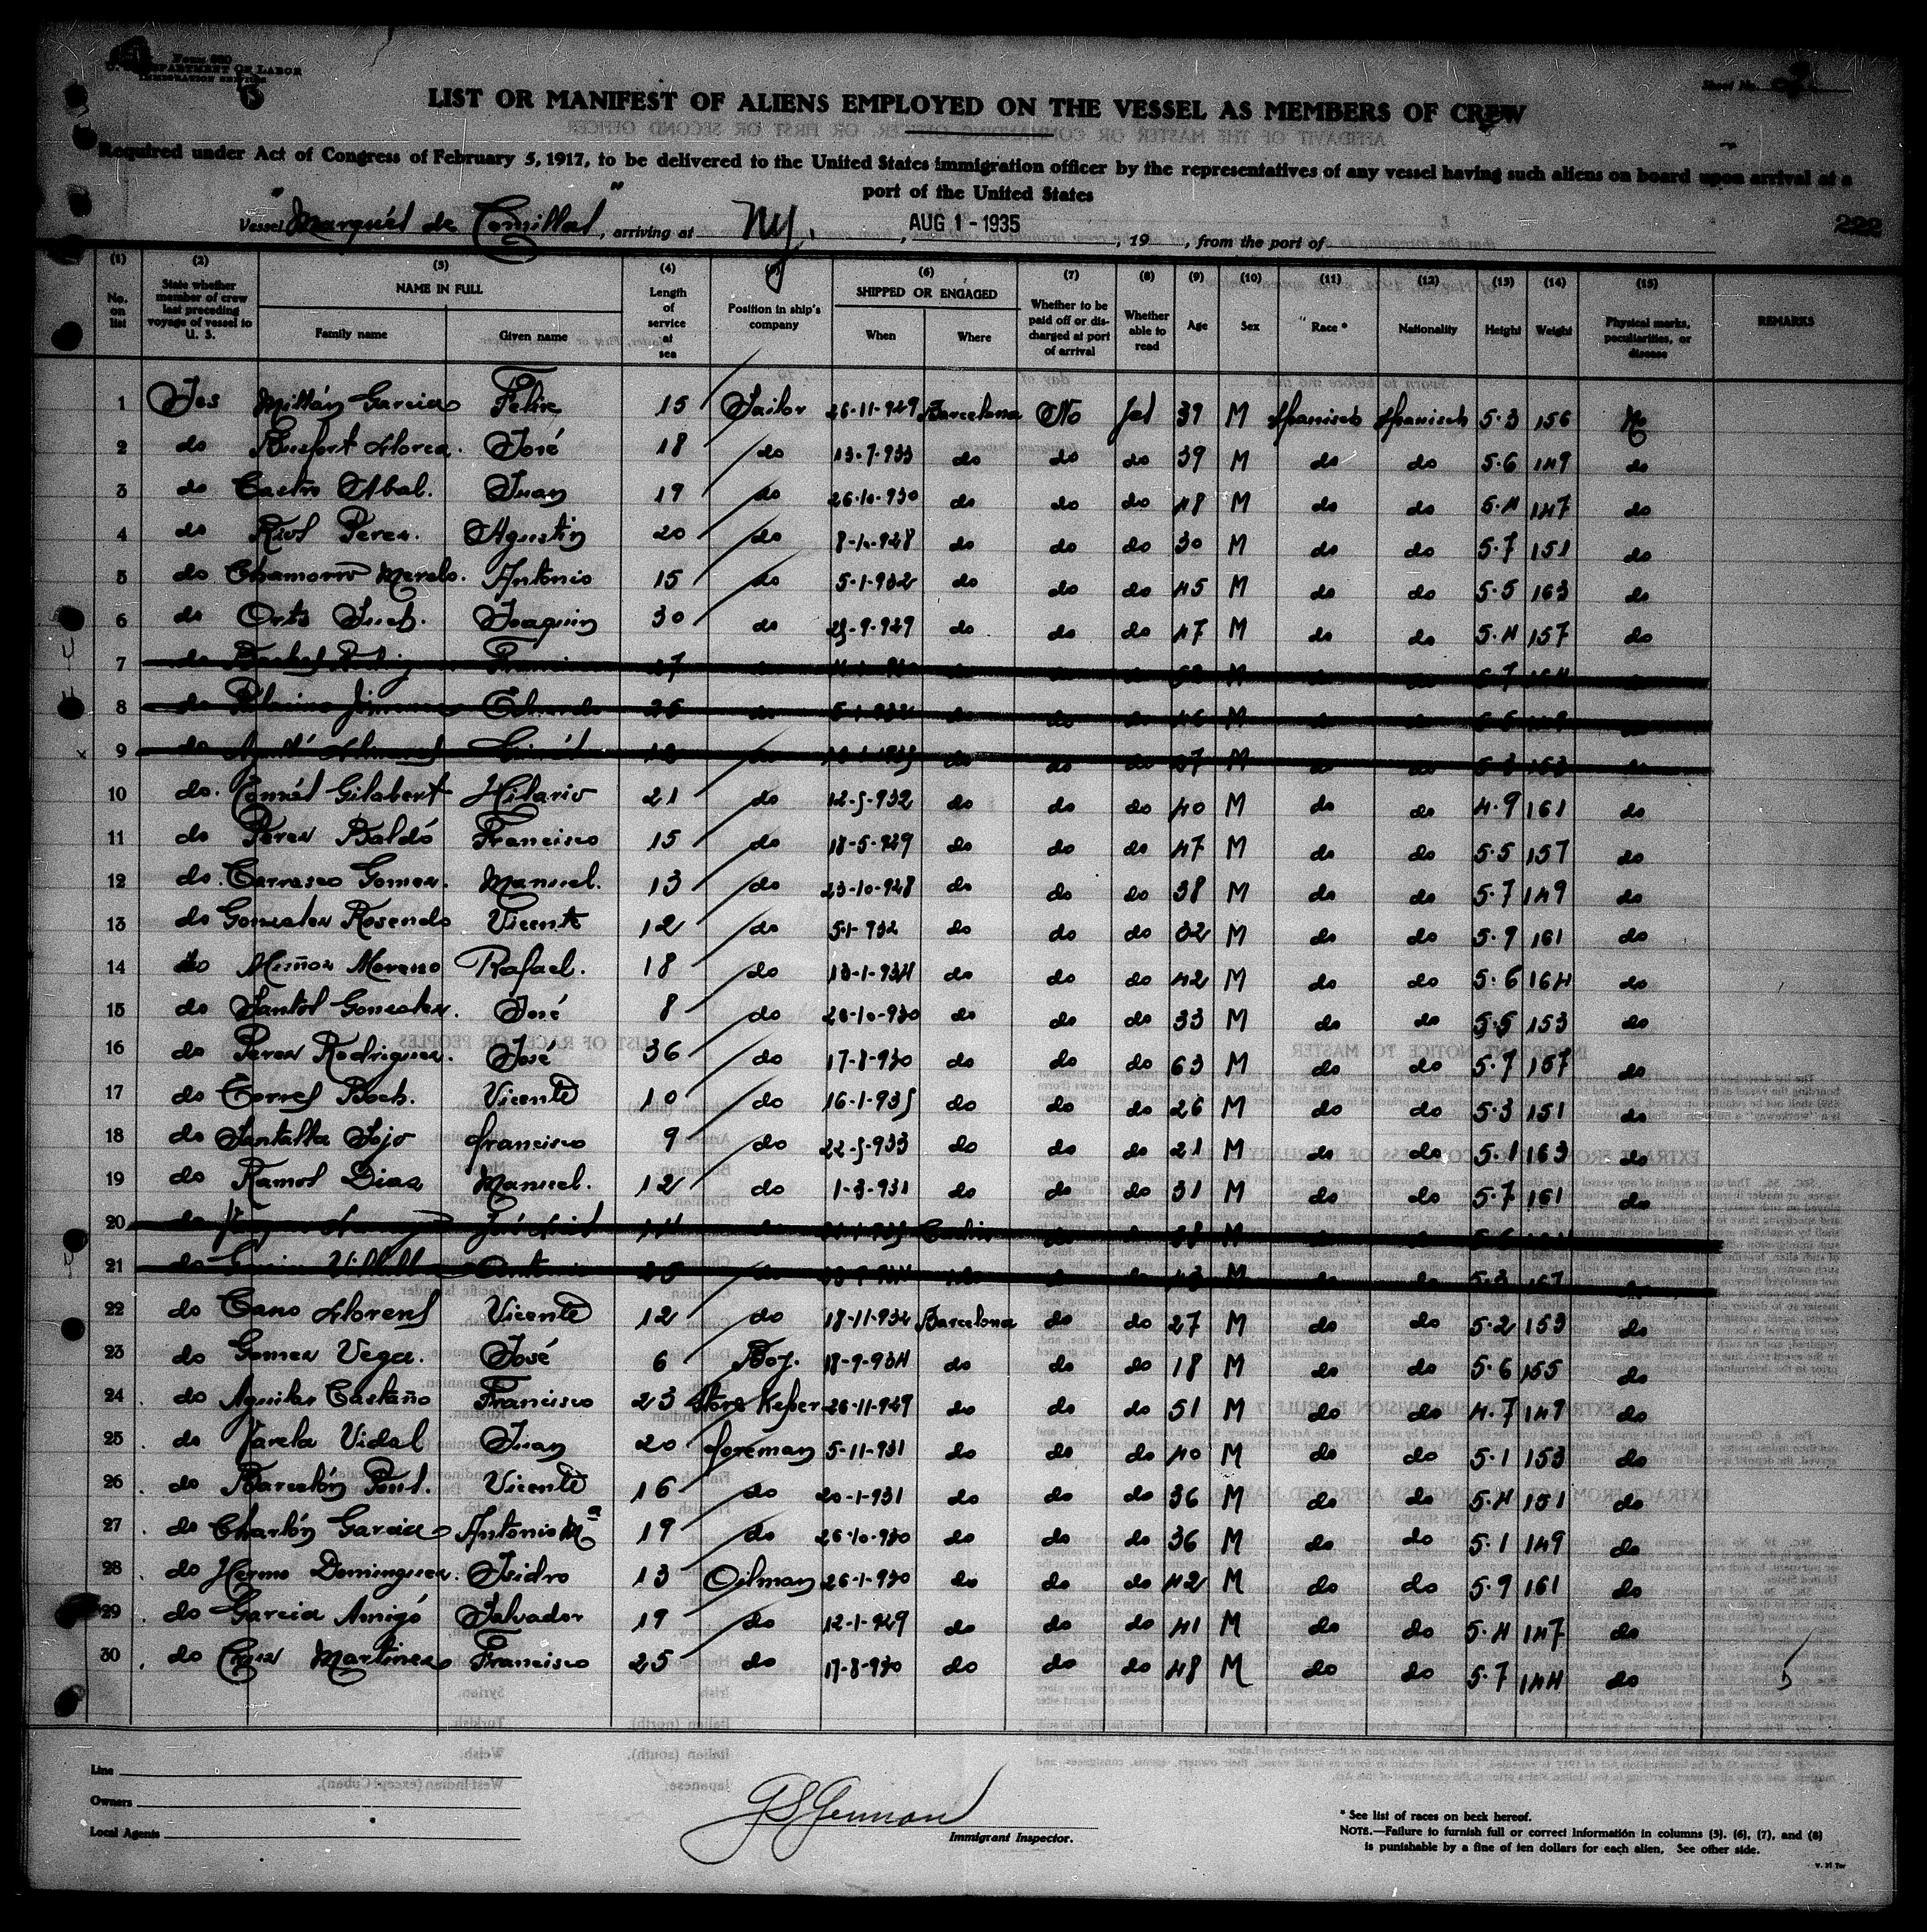 Form 680
U. S. DEPARTMENT OF LABOR
IMMIGRATION SERVICE
Sheet No.
LIST OR MANIFEST OF ALIENS EMPLOYED ON THE VESSEL AS MEMBERS OF CREW
Required under Act of Congress of February 5, 1917, to be delivered to the United States immigration officer by the representatives of any vessel having such aliens on board upon arrival at a
port of the United States
Vessel "Marqués de Comillas", arriving at Ny., AUG 1 - 1935, 19, from the port of
222
(1) (2) (3) (4) (5) (6) (7) (8) (9) (10) (11) (12) (13) (14) (15)
No. on list State whether member of crew last preceding voyage of vessel to U. S. NAME IN FULL Family name Given name Length of service at sea Position in ship's company SHIPPED OR ENGAGED When Where Whether to be paid off or discharged at port of arrival Whether able to read Age Sex Race* Nationality Height Weight Physical marks, peculiarities, or disease REMARKS
1 Yes Millán Garcia Felix 15 Sailor 26-11-929 Barcelona No Yes 39 M Spanisch Spanisch 5.3 156 No
2 do Llorca. José 18 do 13-7-933 do do do 39 M do do 5.6 149 do
3 do Castro Abal. Juan 19 do 26-10-930 do do do 48 M do do 5.4 147 do
4 do Rios Perez. Agustin 20 do 8-10-928 do do do 30 M do do 5.7 151 do
5 do Chamorro Merelo. Antonio 15 do 5-1-932 do do do 45 M do do 5.5 163 do
6 do Orts Joaquin 30 do 25-9-929 do do do 47 M do do 5.4 157 do
7 do
8 do Eduardo 26 do do 46 M
9 do do 37 M
10 do. Tomás Gilabert Hilario 21 do 12-5-932 do do do 40 M do do 4.9 161 do
11 do Perez Baldó Francisco 15 do 18-5-929 do do do 47 M do do 5.5 157 do
12 do. Carrasco Gomez. Manuel. 13 do 23-10-928 do do do 38 M do do 5.7 149 do
13 do Gonzalez Rosendo Vicente 12 do 5-1-932 do do do 32 M do do 5.9 161 do
14 do Muñoz Moreno Rafael. 18 do 13-1-934 do do do 42 M do do 5.6 164 do
15 do Santos Gonzalez. José 8 do 26-10-930 do do do 33 M do do 5.5 153 do
16 do Perez Rodriguez. José 36 do 17-8-930 do do do 63 M do do 5.7 157 do
17 do Torres Bosch. Vicente 10 do 16-1-935 do do do 26 M do do 5.3 151 do
18 do Santalla Sojo francisco 9 do 22-5-933 do do do 21 M do do 5.1 163 do
19 do Ramos Diaz Manuel. 12 do 1-3-931 do do do 31 M do do 5.7 161 do
20 do
21 do Antonio do
22 do Cano Llorens Vicente 12 do 18-11-932 Barcelona do do 27 M do do 5.2 153 do
23 do Gomez Vega. José 6 Boy. 18-9-934 do do do 18 M do do 5.6 155 do
24 do Aguilar Castaño Francisco 23 Store Keper 26-11-929 do do do 51 M do do 4.7 149 do
25 do Varela Vidal Juan 20 foreman 5-11-931 do do do 40 M do do 5.1 153 do
26 do Barcelón Vicente 16 do 20-1-931 do do do 36 M do do 5.4 151 do
27 do Charlón Garcia Antonio Mª 19 do 26-10-930 do do do 36 M do do 5.1 149 do
28 do Hermo Dominguez. Isidro 13 Oilman 26-1-930 do do do 42 M do do 5.9 161 do
29 do Garcia Amigó Salvador 19 do 12-1-929 do do do 41 M do do 5.4 147 do
30 do Cruz Martinez Francisco 25 do 17-8-930 do do do 48 M do do 5.7 144 do
Line
Owners
Local Agents
Immigrant Inspector.
* See list of races on back hereof.
NOTE.—Failure to furnish full or correct information in columns (3), (6), (7), and (8)
is punishable by a fine of ten dollars for each alien. See other side.